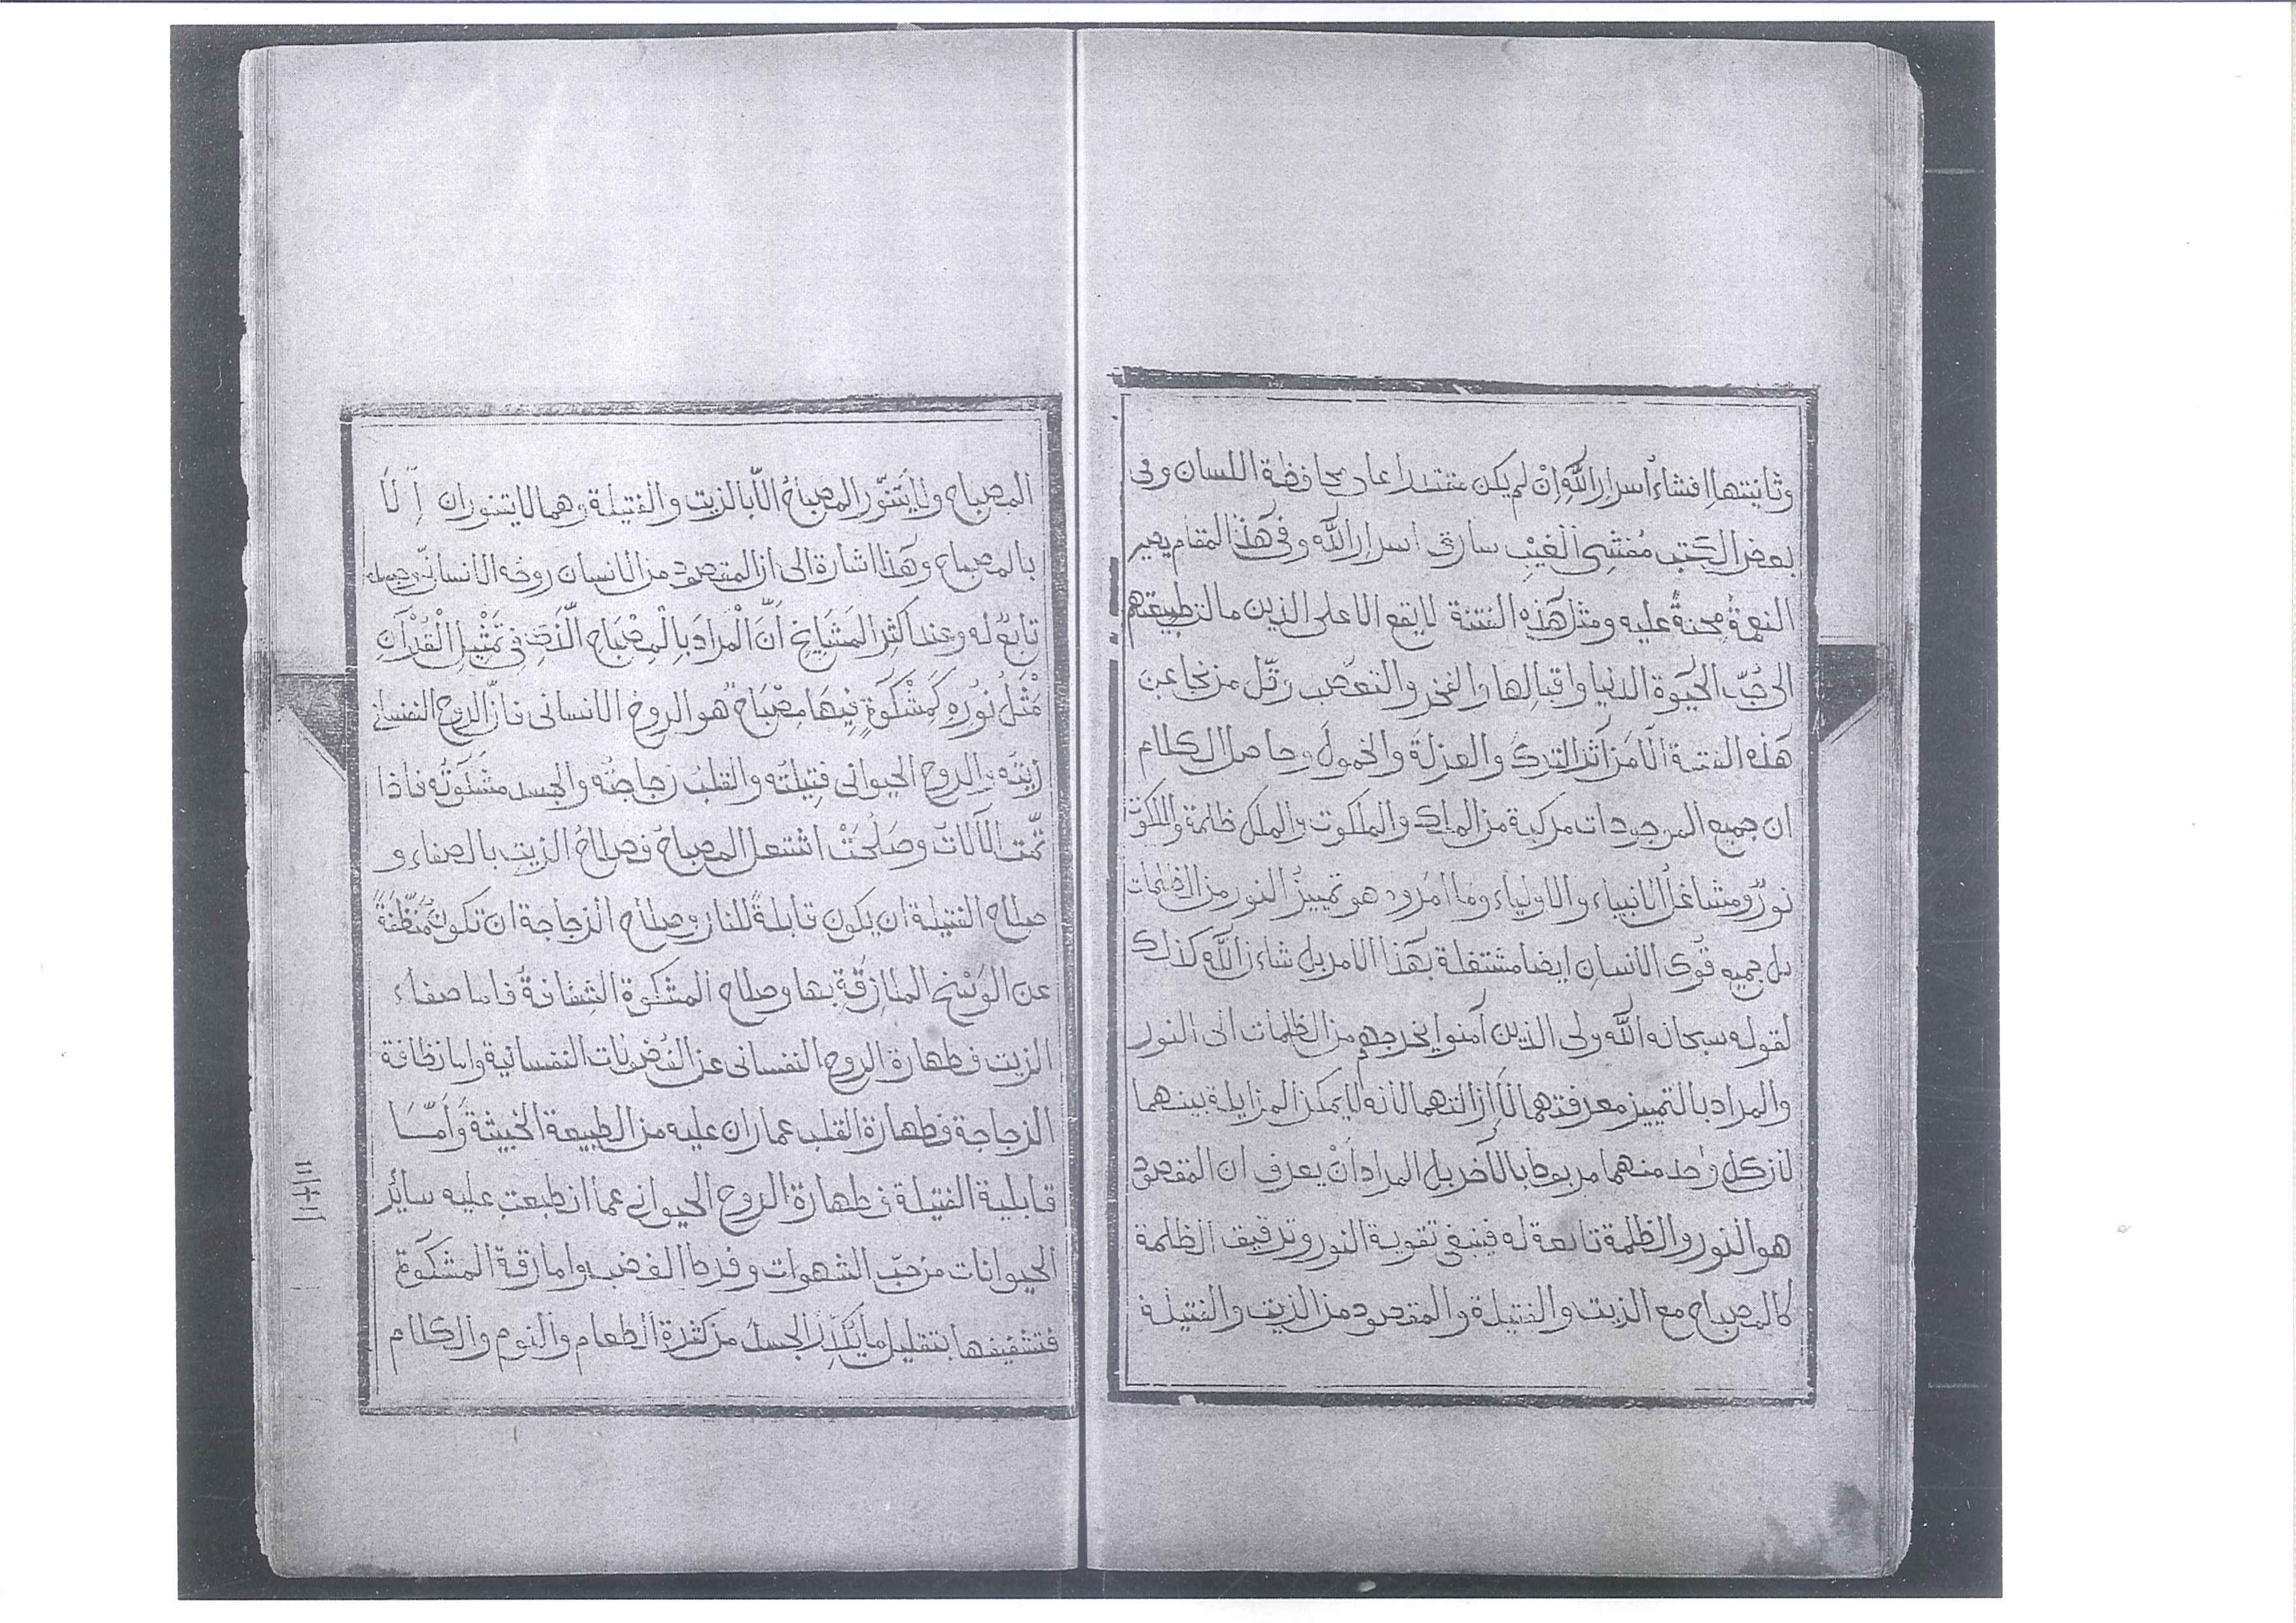 وثانيتها افشاءُ اسرار الله اِنْ لم يكن مقتدرا على محافظة اللسان وفى
بعض الكتب مُفشِى الغَيْبِ سارق اسرار الله وفى هذا المقام يصير
النعمةُ مِحنةً عليه ومثل هذه الفتنة لا يقع الا على الذين مالت طبيعتهم
الى حُبّ الحَيوة الدنيا واقبالها والفخر والتعصّب وقلّ من نجا عن
هذه الفتنة الّا مَن آثر الترك والعزلة والخمول وحاصل الكلام
ان جميع الموجودات مركبة من الملك والملكوت والملك ظلمة والملكوت
نورٌ ومشاغلُ الانبياء والاولياء وما امروا به هو تمييزُ النور من الظلمات
بل جميع قُوى الانسان ايضا مشتغلة بهذا الامر بل شان الله كذلك
لقوله سبحانه الله ولى الذين آمنوا يخرجهم من الظلمات الى النور
والمراد بالتمييز معرفتهما لَا اِزالتهما لانه لا يمكن المزايلة بينهما
لان كل واحد منهما مربوط بالآخر بل المراد أنْ يعرف ان المقصود
هو النور والظلمة تابعة له فينبغى تقوية النور وترقيق الظلمة
كالمصباح مع الزيت والفتيلة والمقصود من الزيت والفتيلة
المصباح ولا يَتَنوّر المصباحُ الّا بالزيت والفتيلة وهما لا يتنوران اِلّا
بالمصباح وهذا اشارة الى ان المقصود من الانسان روحُه الانسانىّ وجسده
تابعٌ له وعند اكثر المَشَايِخِ اَنَّ الْمرادَ بِالْمِصْبَاحِ الَّذى فِى تَمْثِيلِ الْقُرْآنِ
مَثَلُ نُورِهِ كَمِشْكَوةٍ فِيهَا مِصْبَاحٌ هو الروحُ الانسانى فانّ الروح النفسانى
زيتُه والروح الحيوانى فتِيلتُه والقلبُ زجاجتُه والجسد مشكوتُه فاذا
تمّت الآلاتُ وصَلُحَتْ اشتعل المصباح فصلاحُ الزيتِ بالصفاء و
صلاح الفتيلة ان يكون قابلةً للنار وصلاح الزجاجة ان تكونَ مُنَظَّفَةً
عن الوَسْخِ الملازِقَةِ بها وصلاح المشكوة الشفافةُ فاما صفاء
الزيت فطهارة الروح النفسانى عن الفُضولات النفسانية واما نظافة
الزجاجة فطهارة القلب عما ران عليه من الطبيعة الخبيثة وَاَمَّا
قابلية الفتيلة فطهارة الروح الحيوانى عما انطبعت عليه سائر
الحيوانات من حُبّ الشهوات وفرط الغضب واما رقة المشكوة
فتشفيفها بتقليل ما يُكَدّرُ الجسدَ من كثرة الطعام والنوم والكلام